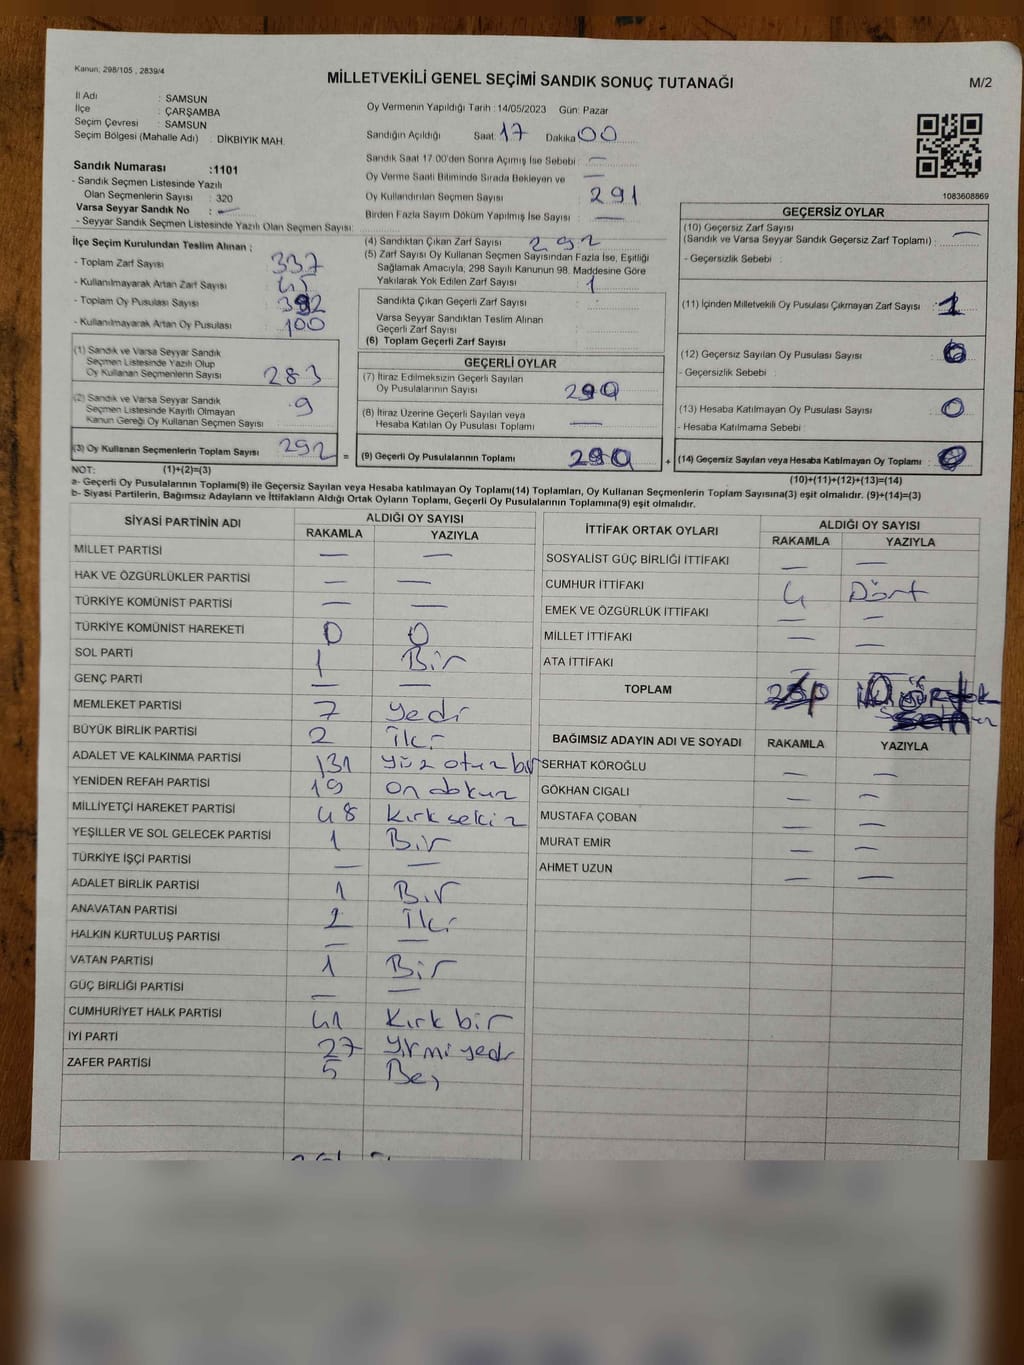 Kanun: 298/105 , 2839/4
MİLLETVEKİLİ GENEL SEÇİMİ SANDIK SONUÇ TUTANAĞI
M/2
İl Adı : SAMSUN
İlçe : ÇARŞAMBA
Seçim Çevresi : SAMSUN
Seçim Bölgesi (Mahalle Adı) : DİKBIYIK MAH.
Oy Vermenin Yapıldığı Tarih : 14/05/2023 Gün: Pazar
Sandığın Açıldığı Saat: 17 Dakika 00
Sandık Saat 17.00'den Sonra Açımış İse Sebebi : —
Oy Verme Saati Bitiminde Sırada Bekleyen ve —
Oy Kullandırılan Seçmen Sayısı 291
Birden Fazla Sayım Döküm Yapılmış İse Sayısı : —
1083608869
Sandık Numarası :1101
- Sandık Seçmen Listesinde Yazılı
Olan Seçmenlerin Sayısı : 320
Varsa Seyyar Sandık No : —
- Seyyar Sandık Seçmen Listesinde Yazılı Olan Seçmen Sayısı:
İlçe Seçim Kurulundan Teslim Alınan :
- Toplam Zarf Sayısı 337
- Kullanılmayarak Artan Zarf Sayısı : 45
- Toplam Oy Pusulası Sayısı
- Kullanılmayarak Artan Oy Pusulası 100
(1) Sandık ve Varsa Seyyar Sandık
Seçmen Listesinde Yazılı Olup
Oy Kullanan Seçmenlerin Sayısı 283
(2) Sandık ve Varsa Seyyar Sandık
Seçmen Listesinde Kayıtlı Olmayan
Kanun Gereği Oy Kullanan Seçmen Sayısı : 9
(3) Oy Kullanan Seçmenlerin Toplam Sayısı 292 =
(4) Sandıktan Çıkan Zarf Sayısı : 292
(5) Zarf Sayısı Oy Kullanan Seçmen Sayısından Fazla İse, Eşitliği
Sağlamak Amacıyla, 298 Sayılı Kanunun 98. Maddesine Göre
Yakılarak Yok Edilen Zarf Sayısı : 1
Sandıkta Çıkan Geçerli Zarf Sayısı :
Varsa Seyyar Sandıktan Teslim Alınan
Geçerli Zarf Sayısı :
(6) Toplam Geçerli Zarf Sayısı
GEÇERLİ OYLAR
(7) İtiraz Edilmeksizin Geçerli Sayılan
Oy Pusulalarının Sayısı : 290
(8) İtiraz Üzerine Geçerli Sayılan veya
Hesaba Katılan Oy Pusulası Toplamı : —
(9) Geçerli Oy Pusulalarının Toplamı 290 +
GEÇERSİZ OYLAR
(10) Geçersiz Zarf Sayısı
(Sandık ve Varsa Seyyar Sandık Geçersiz Zarf Toplamı) : —
- Geçersizlik Sebebi :
(11) İçinden Milletvekili Oy Pusulası Çıkmayan Zarf Sayısı : 1
(12) Geçersiz Sayılan Oy Pusulası Sayısı :
- Geçersizlik Sebebi :
(13) Hesaba Katılmayan Oy Pusulası Sayısı : 0
- Hesaba Katılmama Sebebi :
(14) Geçersiz Sayılan veya Hesaba Katılmayan Oy Toplamı :
NOT: (1)+(2)=(3)
(10)+(11)+(12)+(13)=(14)
a- Geçerli Oy Pusulalarının Toplamı(9) ile Geçersiz Sayılan veya Hesaba katılmayan Oy Toplamı(14) Toplamları, Oy Kullanan Seçmenlerin Toplam Sayısına(3) eşit olmalıdır. (9)+(14)=(3)
b- Siyasi Partilerin, Bağımsız Adayların ve İttifakların Aldığı Ortak Oyların Toplamı, Geçerli Oy Pusulalarının Toplamına(9) eşit olmalıdır.
SİYASİ PARTİNİN ADI ALDIĞI OY SAYISI
RAKAMLA YAZIYLA
MİLLET PARTİSİ — —
HAK VE ÖZGÜRLÜKLER PARTİSİ — —
TÜRKİYE KOMÜNİST PARTİSİ — —
TÜRKİYE KOMÜNİST HAREKETİ 0 0
SOL PARTİ 1 Bir
GENÇ PARTİ — —
MEMLEKET PARTİSİ 7 Yedi
BÜYÜK BİRLİK PARTİSİ 2 İki
ADALET VE KALKINMA PARTİSİ 131 Yüz otuz bir
YENİDEN REFAH PARTİSİ 19 On dokuz
MİLLİYETÇİ HAREKET PARTİSİ 48 Kırk sekiz
YEŞİLLER VE SOL GELECEK PARTİSİ 1 Bir
TÜRKİYE İŞÇİ PARTİSİ — —
ADALET BİRLİK PARTİSİ 1 Bir
ANAVATAN PARTİSİ 2 İki
HALKIN KURTULUŞ PARTİSİ — —
VATAN PARTİSİ 1 Bir
GÜÇ BİRLİĞİ PARTİSİ — —
CUMHURİYET HALK PARTİSİ 41 Kırk bir
İYİ PARTİ 27 Yirmi yedi
ZAFER PARTİSİ 5 Beş
İTTİFAK ORTAK OYLARI ALDIĞI OY SAYISI
RAKAMLA YAZIYLA
SOSYALİST GÜÇ BİRLİĞİ İTTİFAKI — —
CUMHUR İTTİFAKI 4 Dört
EMEK VE ÖZGÜRLÜK İTTİFAKI — —
MİLLET İTTİFAKI — —
ATA İTTİFAKI — —
TOPLAM
BAĞIMSIZ ADAYIN ADI VE SOYADI RAKAMLA YAZIYLA
SERHAT KÖROĞLU — —
GÖKHAN CIGALI — —
MUSTAFA ÇOBAN — —
MURAT EMİR — —
AHMET UZUN — —